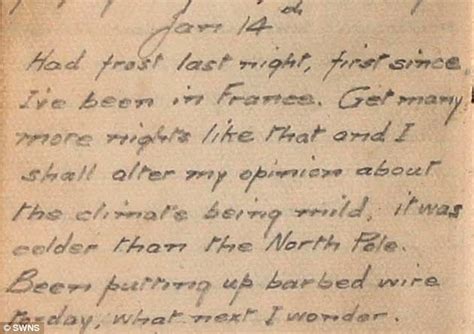 Jan 14th
Had frost last night, first since
I've been in France. Get many
more nights like that and I
shall alter my opinion about
the climate being mild, it was
colder than the North Pole.
Been putting up barbed wire
to-day, what next I wonder.
© SWNS